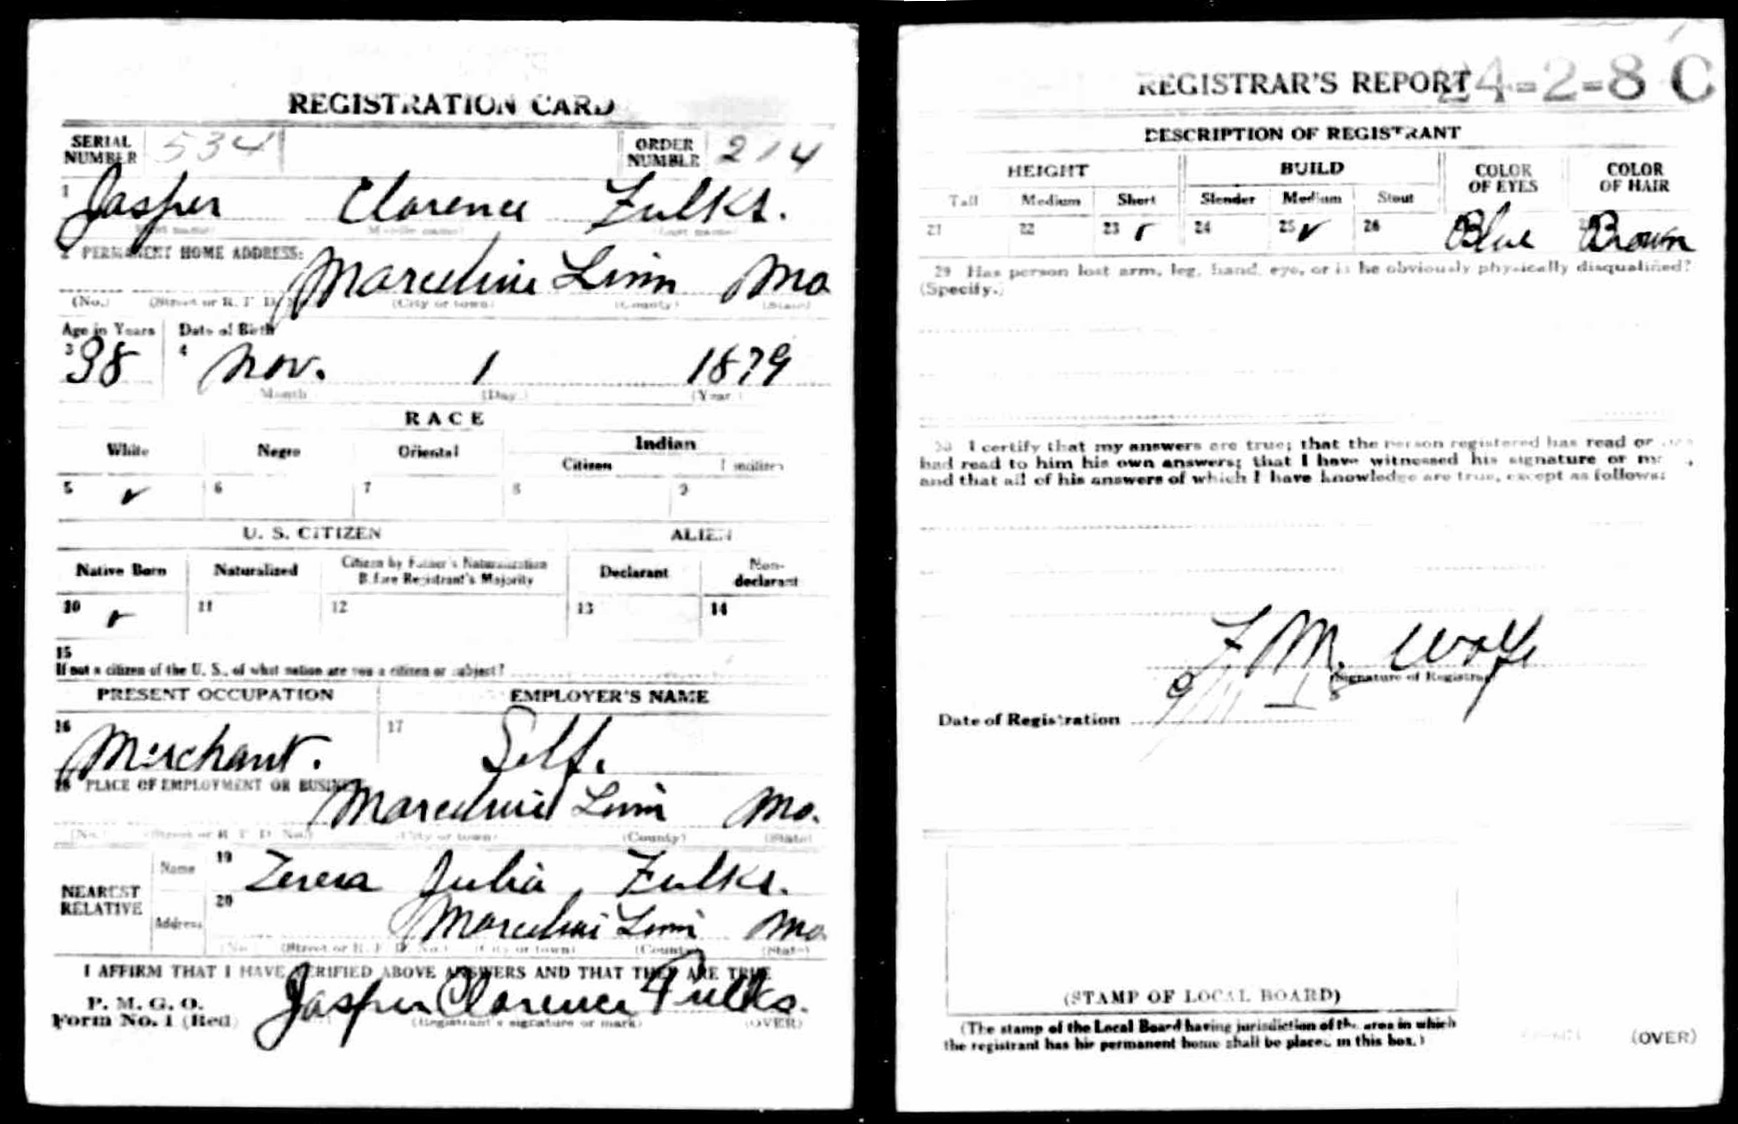 REGISTRATION CARD
SERIAL NUMBER 534 ORDER NUMBER 214
1 Jasper Clarence Fulks.
(First name) (Middle name) (Last name)
2 PERMANENT HOME ADDRESS:
Marceline Linn Mo
(No.) (Street or R. F. D. No.) (City or town) (County) (State)
Age in Years Date of Birth
3 38 4 Nov. 1 1879
Month (Day.) (Year.)
RACE
White Negro Oriental Indian
Citizen Noncitizen
5 ✓ 6 7 8 9
U. S. CITIZEN ALIEN
Native Born Naturalized Citizen by Father's Naturalization Before Registrant's Majority Declarant Non-declarant
10 ✓ 11 12 13 14
15
If not a citizen of the U. S., of what nation are you a citizen or subject?
PRESENT OCCUPATION EMPLOYER'S NAME
16 Merchant. 17 Self.
18 PLACE OF EMPLOYMENT OR BUSINESS
Marceline Linn Mo.
(No.) (Street or R. F. D. No.) (City or town) (County) (State)
NEAREST RELATIVE Name 19 Teresa Julia Fulks.
Address 20 Marceline Linn Mo
(No.) (Street or R. F. D. No.) (City or town) (County) (State)
I AFFIRM THAT I HAVE VERIFIED ABOVE ANSWERS AND THAT THEY ARE TRUE
P. M. G. O.
Form No. 1 (Red) Jasper Clarence Fulks.
(Registrant's signature or mark) (OVER)
REGISTRAR'S REPORT 24-2-8 C
DESCRIPTION OF REGISTRANT
HEIGHT BUILD COLOR OF EYES COLOR OF HAIR
Tall Medium Short Slender Medium Stout
21 22 23 ✓ 24 25 ✓ 26 Blue Brown
29 Has person lost arm, leg, hand, eye, or is he obviously physically disqualified?
(Specify.)
30 I certify that my answers are true; that the person registered has read or has
had read to him his own answers; that I have witnessed his signature or mark,
and that all of his answers of which I have knowledge are true, except as follows:
F. M. Wolfe
(Signature of Registrar)
Date of Registration
(STAMP OF LOCAL BOARD)
(The stamp of the Local Board having jurisdiction of the area in which
the registrant has his permanent home shall be placed in this box.)
(OVER)